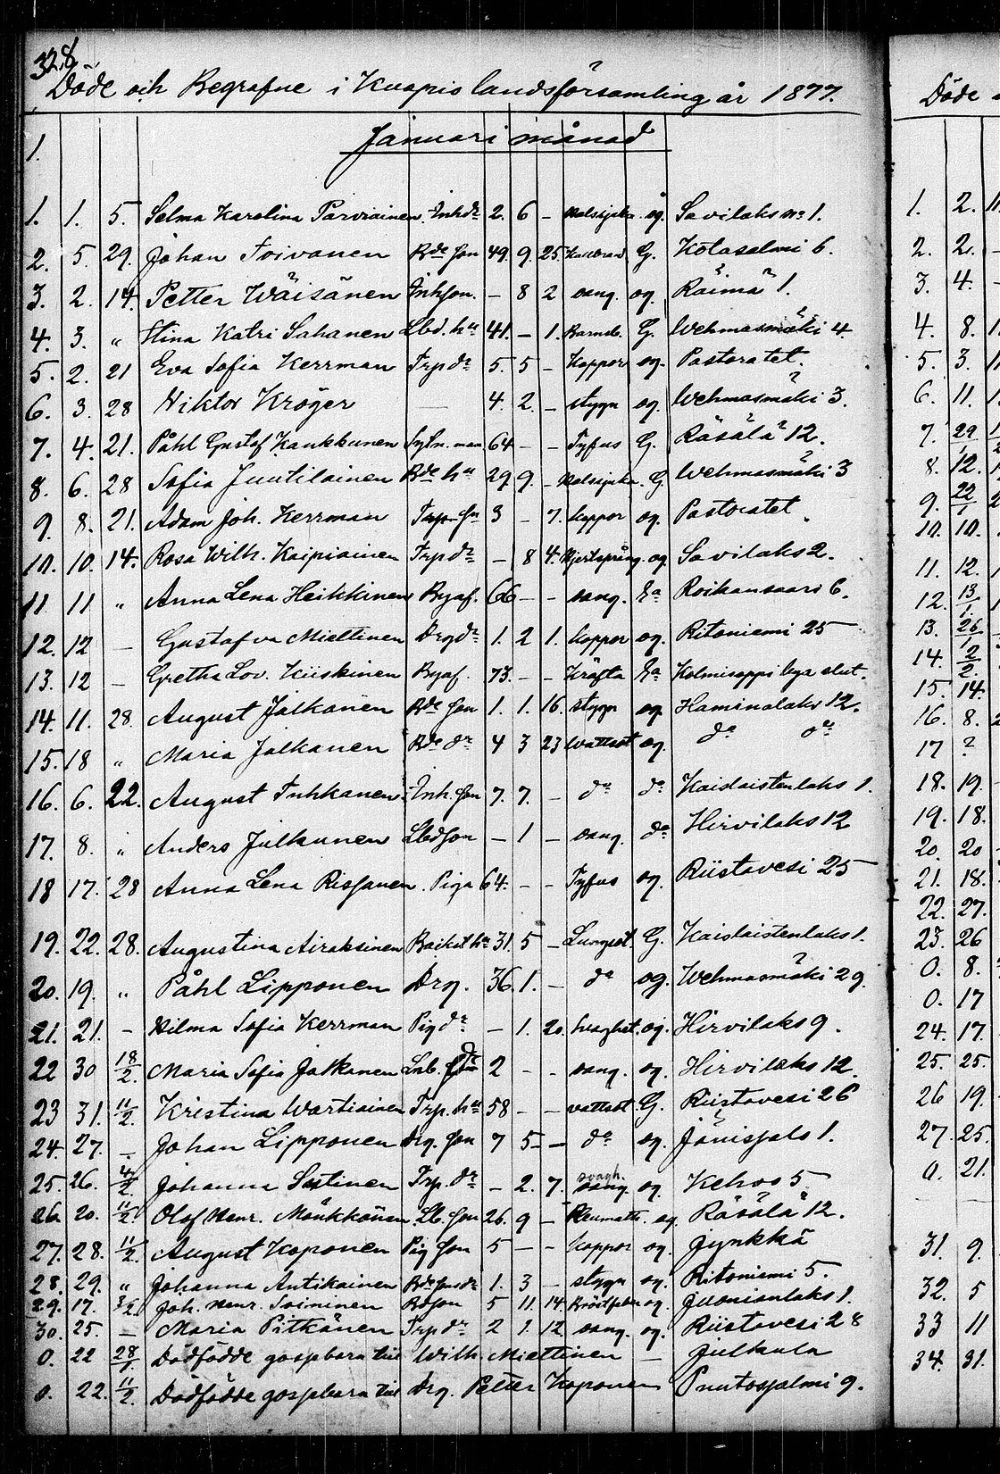 328
Döde och Begrafne i Kuopio landsförsamling år 1877.
Januari månad
1.
1. 1. 5. Selma Karolina Parviainen Inhdr 2. 6 – og. Savilaks No 1.
2. 5. 29. Johan Toivanen Bde son 49. 9. 25. G. Kotasalmi 6.
3. 2. 14. Petter Wäisänen Inhson. – 8 2 og Räimä 1.
4. 3. „ Stina Katri Sahanen Lbd. hu 41. – 1. Barnsb. G. Wehmasmäki 4
5. 2. 21 Eva Sofia Kerrman Trp dr 5. 5 – Koppor og. Pastoratet.
6. 3. 28 Wiktor Kröger 4. 2. – stygn og. Wehmasmäki 3.
7. 4. 21. Påhl Gustaf Kaukkunen 64 – – Tyfus G. Räsälä 12.
8. 6. 28 Sofia Juutilainen Bde hu 29. 9. – G. Wehmasmäki 3
9. 8. 21. Adam Joh. Kerrman Trp. sn 3 – 7. koppor og. Pastoratet.
10. 10. 14. Rosa Wilh. Kaipiainen Trp dr – 8 4. og. Savilaks 2.
11 11 „ Anna Lena Heikkinen 66 – – Ea Roikansaari 6.
12. 12 – Gustafva Miettinen Drg dr 1. 2 1. koppor og. Ritoniemi 25
13. 12 – Gretha Lov. Kiiskinen 73. – – Kräfta Ea Kolmisoppi
14. 11. 28. August Jalkanen Bde son 1. 1. 16. stygn og Haminalaks 12.
15. 18 „ Maria Jalkanen Bde dr 4 3 23 wattsot og. do do
16. 6. 22. August Tuhkanen Inh. son 7. 7. – do do Kaislastenlaks 1.
17. 8. „ Anders Julkunen Lbdson – 1 – do Hirvilaks 12
18 17. 28 Anna Lena Rissanen. Piga 64. – – Tyfus og. Riistavesi 25
19. 22. 28. Augustina Airaksinen hu 31. 5 – Lungsot. G. Kaislastenlaks 1.
20. 19. „ Påhl Lipponen Drg. 36. 1. – do og. Wehmasmäki 29
21. 21. – Wilma Sofia Kerrman Pig dr – 1. 20. Svaghet. og. Hirvilaks 9.
22 30 18/2. Maria Sofia Jalkanen Lnb. dr 2 – – og. Hirvilaks 12.
23 31. 11/2. Kristina Wartiainen Trp. hu 58 – – wattsot G. Riistavesi 26
24. 27. – Johan Lipponen Drg. son 7 5 – do og. Jänissalo 1.
25. 26. 4/2. Johanna Sutinen Trp. dr – 2. 7. svagh. og. Kehvo 5.
26. 20. 11/2. Olof Henr. Mönkkönen Lb. son 26. 9 – Reumath. og. Räsälä 12.
27. 28. 11/2. August Koponen Pig son 5 – – koppor og. Jynkkä
28. 29. „ Johanna Antikainen 1. 3 – stygn og. Ritoniemi 5.
29. 17. Joh. Henr. Toiminen 5 11. 14. og. Juonionlaks 1.
30. 25. – Maria Pitkänen Trp dr 2 1. 12 og. Riistavesi 28
0. 22 28/1. Dödfödde gossbarn till Wilh. Miettinen – Julkula
0. 22. 11/2. Dödfödde gossbarn till Drg. Petter Koponen Puutossalmi 9.
Döde
1. 2.
2. 2.
3. 4.
4. 8.
5. 3.
6. 11.
7. 29/1
8. 12.
9. 22/1
10. 10.
11. 12.
12. 13/1.
13. 26/1
14. 2/2.
15. 14.
16. 8.
17 ?
18. 19.
19. 18.
20. 20
21. 18.
22. 27.
23. 26
0. 8.
0. 17
24. 17.
25. 25.
26 19.
27. 25.
0. 21.
31. 9.
32. 5
33 11
34. 31.